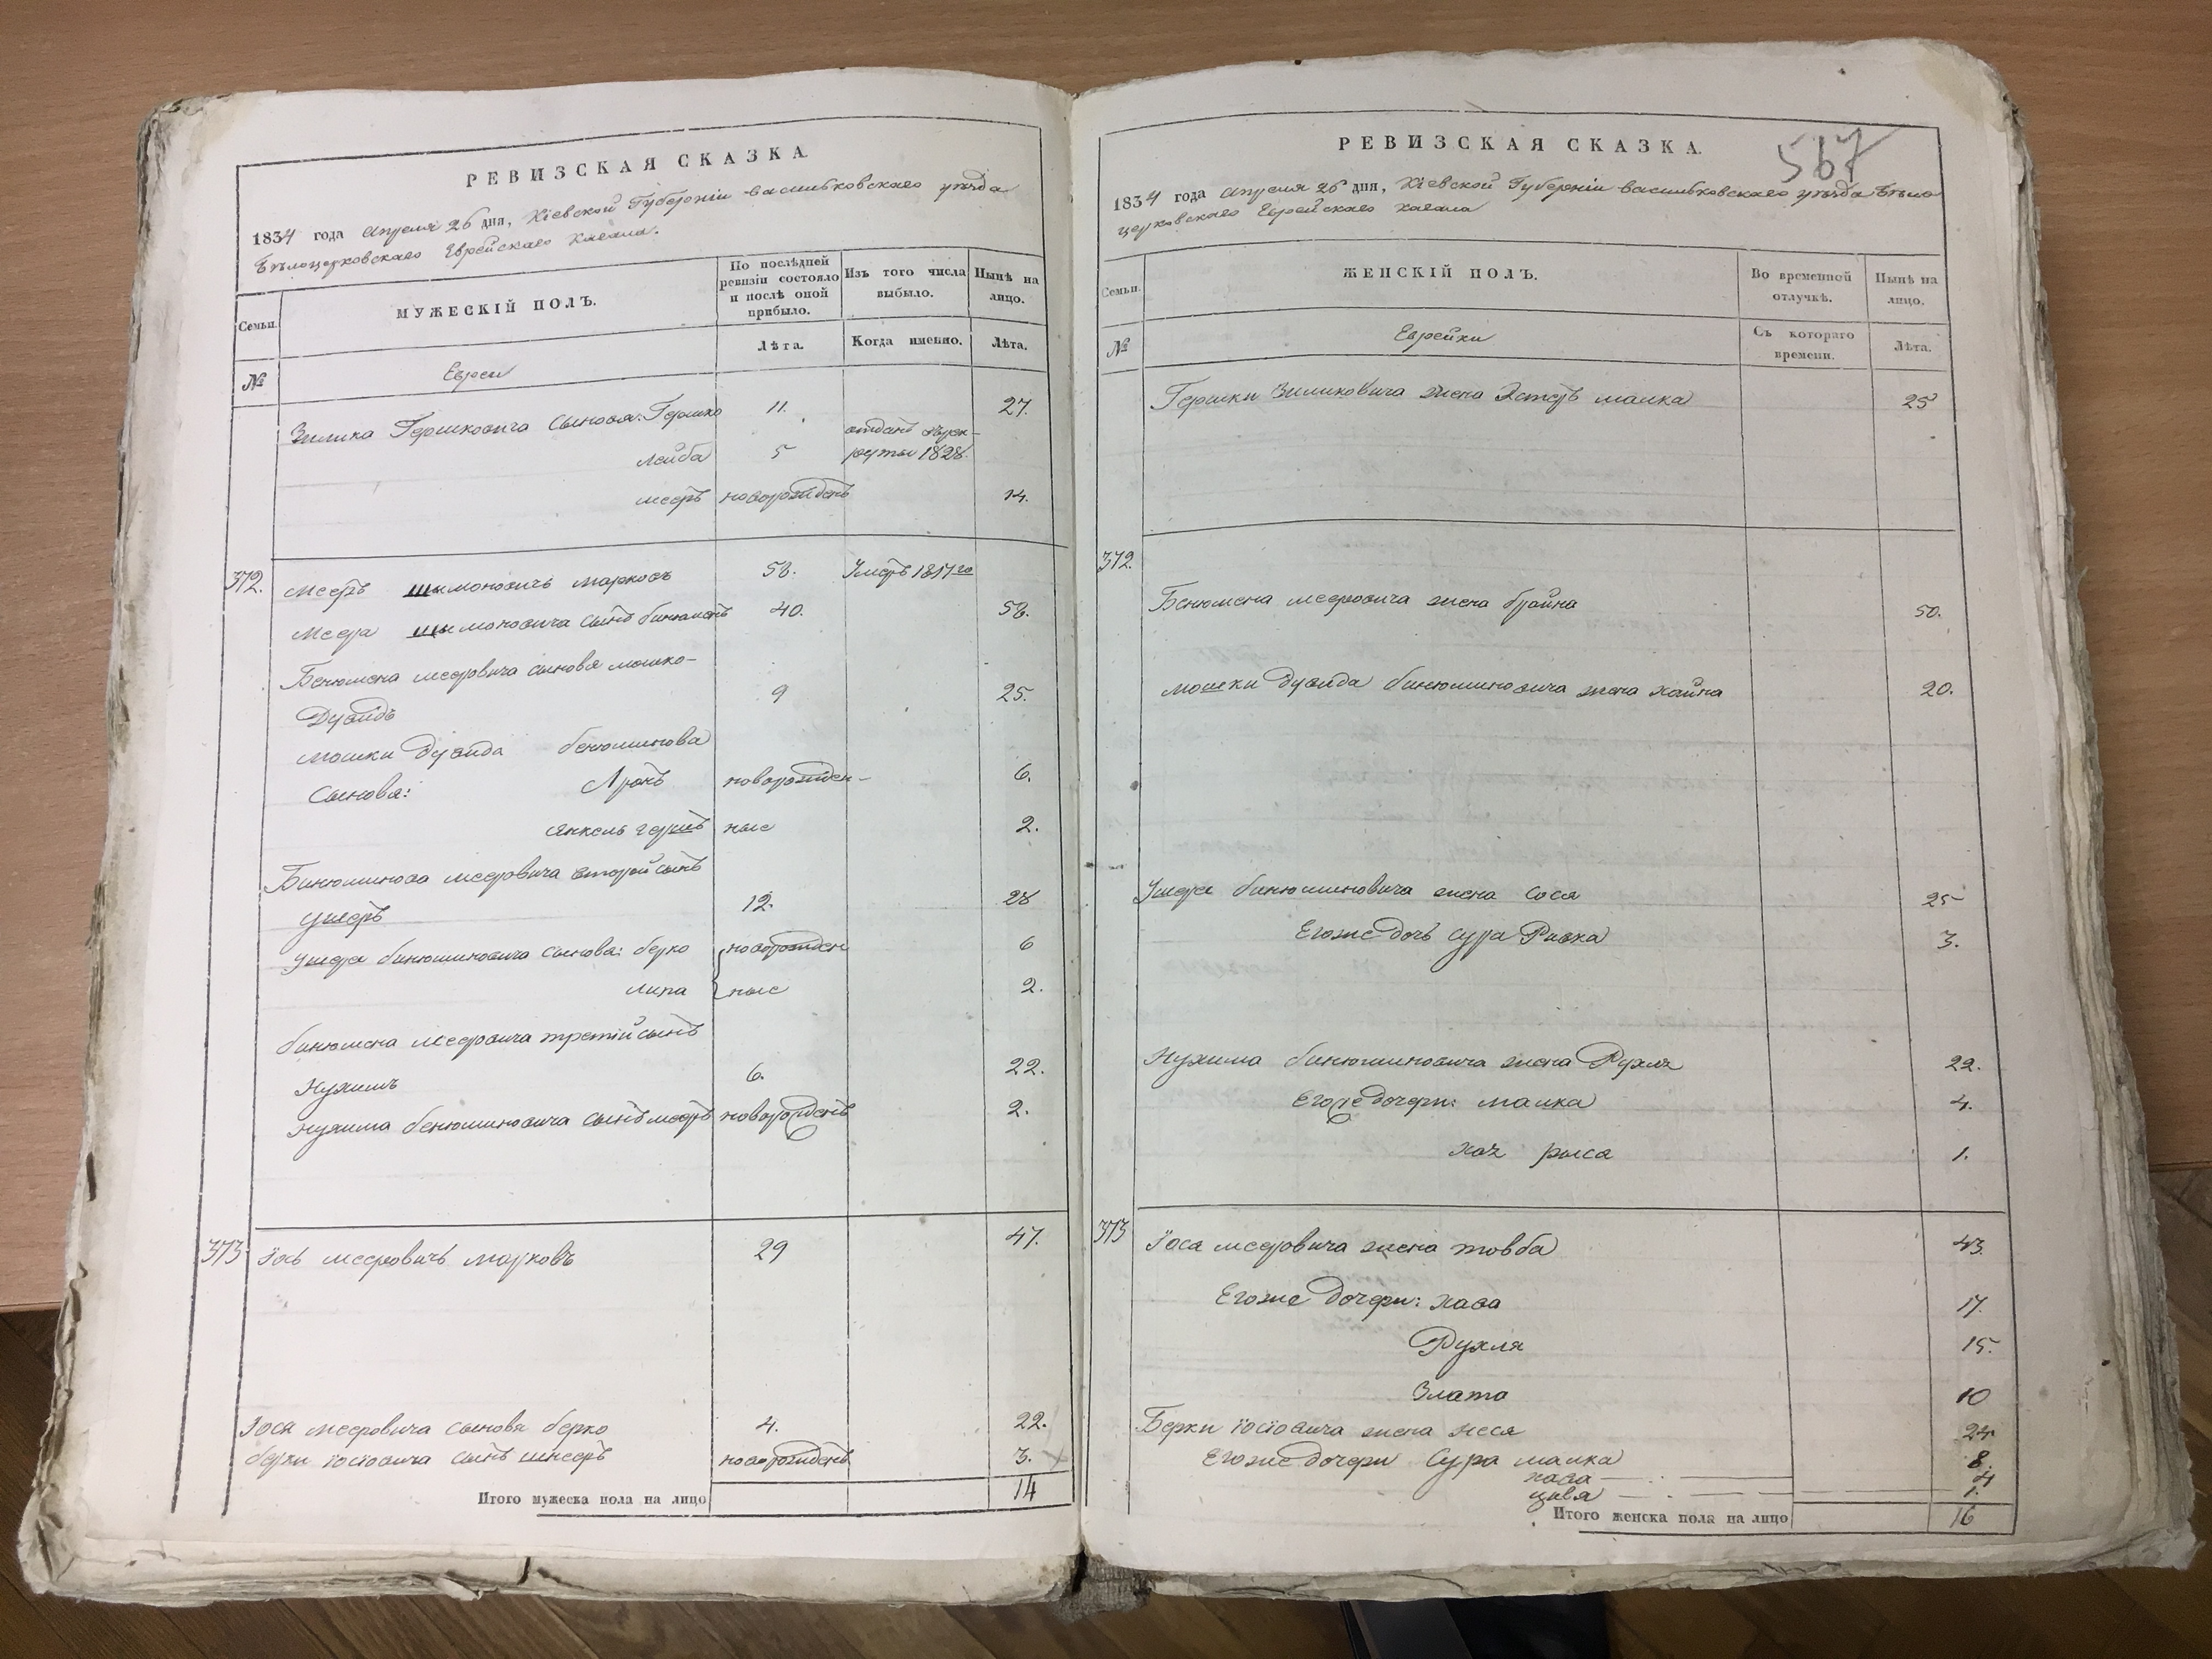 РЕВИЗСКАЯ СКАЗКА.
1834 года Апреля 26 дня, Кіевской Губерніи Васильковскаго уѣзда
Бѣлоцерковскаго Еврейскаго Кагала.
Семьи.
МУЖЕСКІЙ ПОЛЪ.
По послѣдней ревизіи состояло и послѣ оной прибыло.
Изъ того числа выбыло.
Нынѣ на лицо.
№
Евреи
Лѣта.
Когда именно.
Лѣта.
Зилика Гершковича сыновя: Гершко 11. 27.
Лейба 5 отданъ въ рек-
руты 1828.
мееръ новорожденъ 14.
372. Мееръ Шымоновичъ Марковъ 58. Умеръ 1817го
Меера Шымоновича сынъ бинюменъ 40. 58.
Бенюмена мееровича сыновя мошко-
Дувидъ 9 25.
мошки Дувида бенюминова
Сыновя: Аронъ новорожден- 6.
янкель гершъ ные 2.
Бинюминова мееровича второй сынъ
ушеръ 12. 28
ушера бинюминовича сыновя: берко новорожден 6
липа ные 2.
бинюмена мееровича третій сынъ
Нухимъ 6. 22.
Нухима бенюминовича сынъ мееръ новорожденъ 2.
373 Іось мееровичъ марковъ 29 47.
Іося мееровича сыновя берко 4. 22.
берки іосіовича сынъ шмееръ новорожденъ 3.
Итого мужеска пола на лицо 14
РЕВИЗСКАЯ СКАЗКА.
567
1834 года Апреля 26 дня, Кіевской Губерніи Васильковскаго уѣзда Бѣло
церковскаго Еврейскаго Кагала
Семьи.
ЖЕНСКІЙ ПОЛЪ.
Во временной отлучкѣ.
Нынѣ на лицо.
№
Еврейки
Съ котораго времени.
Лѣта.
Гершки Зиликовича жена Эстеръ малка 25
372.
Бенюмена мееровича жена брайна 50.
мошки Дувида бинюминовича жена хайна 20.
Ушера бинюминовича жена сося 25
Егоже дочь сура Ривка 3.
Нухима бинюминовича жена Рухля 22.
Егоже дочери: малка 4.
хая рыса 1.
373 Іося мееровича жена товба 43.
Егоже дочери: хава 17.
Рухля 15.
Злата 10
Берки іосіовича жена неся 24.
Егоже дочери Сура малка 8.
хава 4
цивя 1.
Итого женска пола на лицо 16